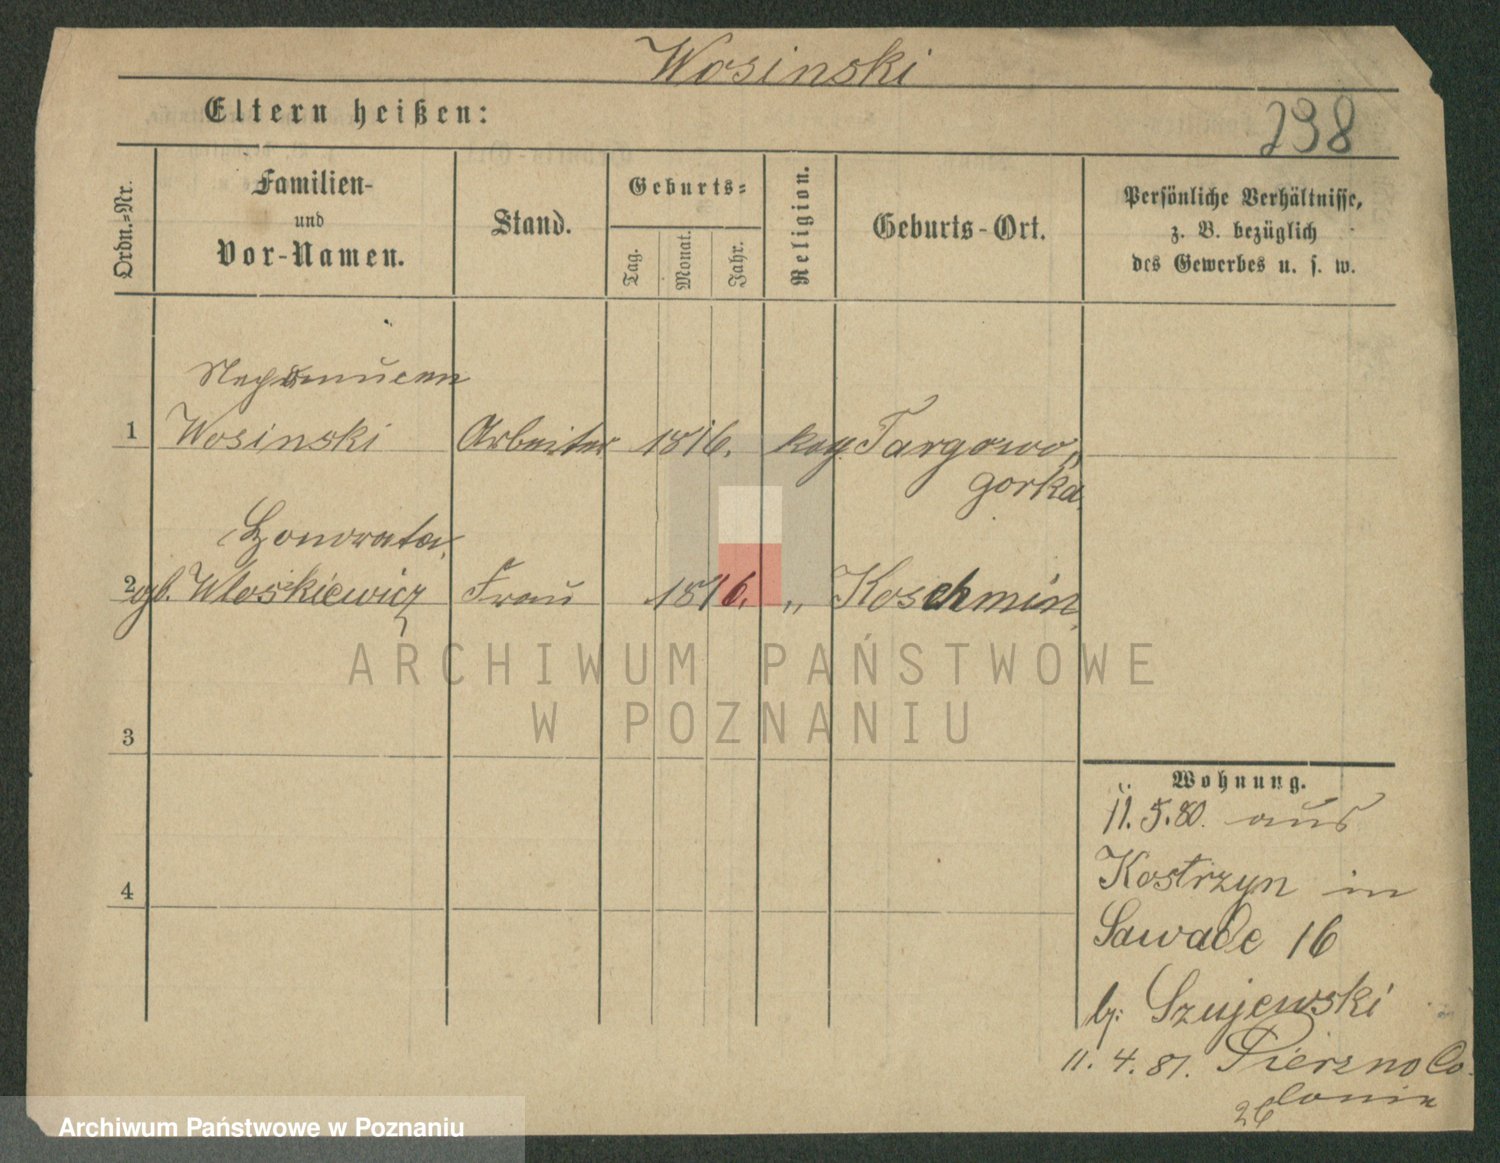 Wosinski
Eltern heißen:
238
Ordn.-Nr.
Familien-
und
Vor-Namen.
Stand.
Geburts-
Tag.
Monat.
Jahr.
Religion.
Geburts-Ort.
Persönliche Verhältnisse,
z. B. bezüglich
des Gewerbes u. s. w.
Nepomucen
1 Wosinski Arbeiter 1816. Targowo
gorka
Honorata
2 gb. Wloskiewicz Frau 1816. " Koschmin
ARCHIWUM PAŃSTWOWE
W POZNANIU
3
Wohnung.
11.5.80. aus
Kostrzyn in
4
Sawade 16
b/: Szujewski
11.4.81. Co
lonie
26
Archiwum Państwowe w Poznaniu